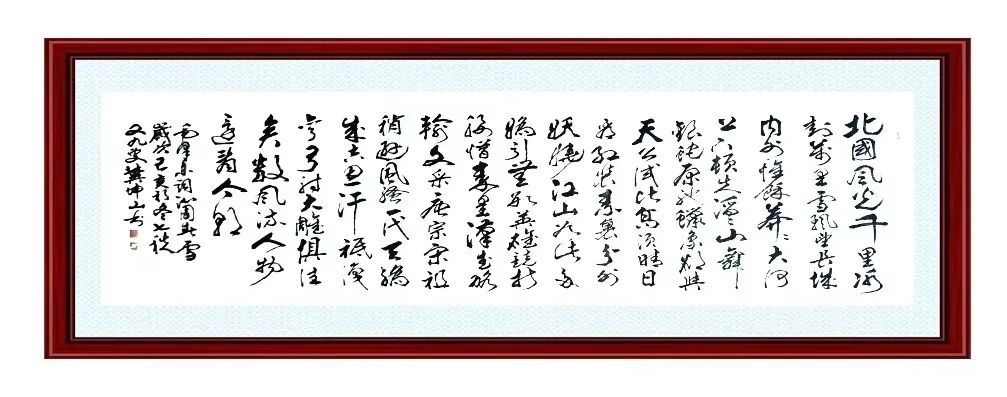 北國風光千里冰
封萬里雪飄望長城
內外惟餘莽〻大河
上下頓失滔〻山舞
銀蛇原馳蠟象欲與
天公試比高須晴日
看紅裝素裹分外
妖嬈江山如此多
嬌引無數英雄競折
腰惜秦皇漢武略
輸文采唐宗宋祖
稍遜風騷一代天驕
成吉思汗祇識
彎弓射大雕俱往
矣數風流人物
還看今朝
毛澤東詞沁園春雪
歲次己亥初冬七秩
又九叟坤山书